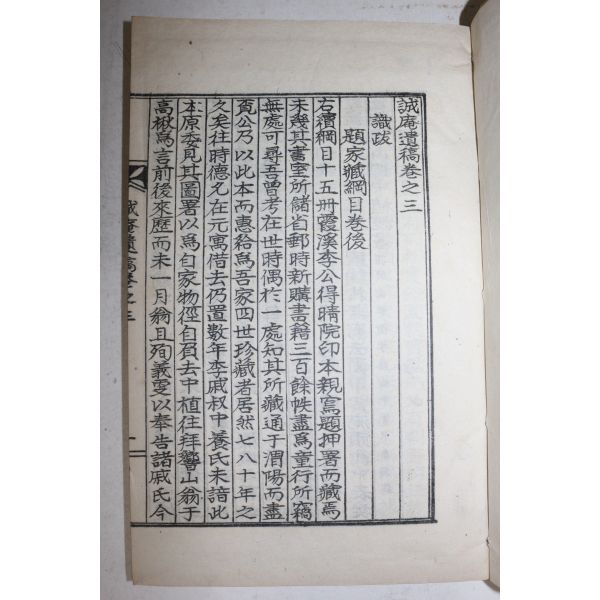 誠庵遺稿卷之三
識跋
題家藏綱目卷後
右續綱目十五冊霞溪李公得晴院印本親寫題押署而藏焉
未幾其書室所儲省郵時新購書籍三百餘帙盡爲童行所竊
無處可尋吾曾考在世時偶於一處知其所藏通于渭陽而盡
賣公乃以此本而惠給爲吾家四世珍藏者居然七八十年之
久矣往時德名在元寓借去仍置數年李戚叔中養氏未諳此
本原委見其圖署以爲自家物徑自負去中植往拜響山翁于
高楸爲言前後來歷而未一月翁且殉義雯以奉告諸戚氏今
誠庵遺稿卷之三
一